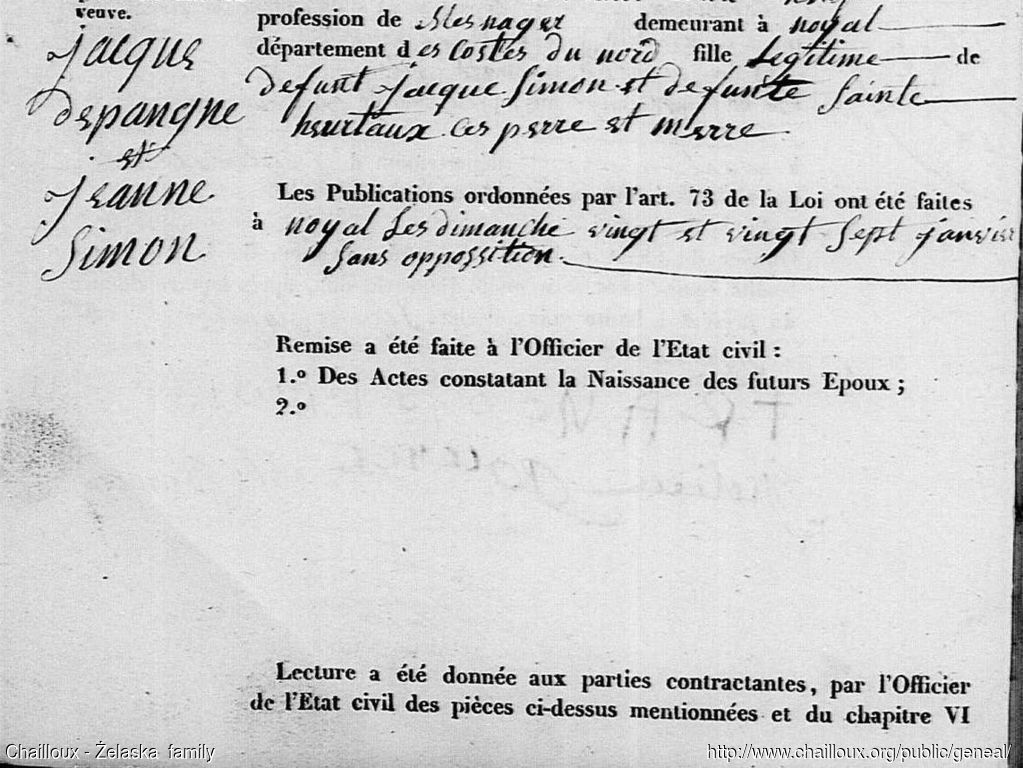 veuve.
Jacque
depangne
et
Jeanne
Simon
profession de Mesnager demeurant à noyal
département des Costes du nord fille Legitime de
defunt Jacque Simon et defunte Sainte
heurtaux ces perre et merre
Les Publications ordonnées par l'art. 73 de la Loi ont été faites
à noyal Les dimanche vingt et vingt Sept janvier
Sans oppossition.
Remise a été faite à l'Officier de l'Etat civil :
1.º Des Actes constatant la Naissance des futurs Epoux ;
2.º
Lecture a été donnée aux parties contractantes, par l'Officier
de l'Etat civil des pièces ci-dessus mentionnées et du chapitre VI
Chailloux - Żelaska family
http://www.chailloux.org/public/geneal/